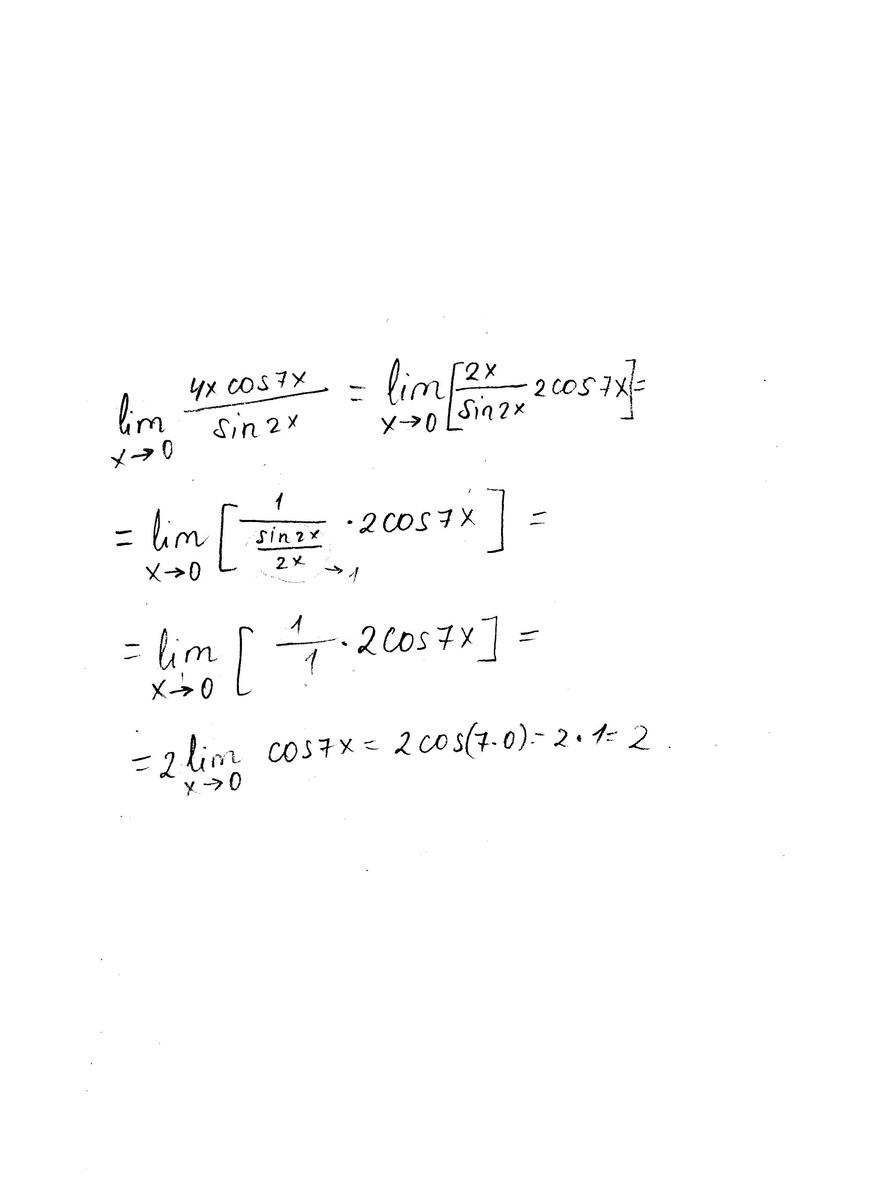 lim x→0 4x cos7x / sin2x = lim x→0 [2x / sin2x 2cos7x] =
= lim x→0 [1 / (sin2x / 2x) →1 · 2cos7x] =
= lim x→0 [1 / 1 · 2cos7x] =
= 2 lim x→0 cos7x = 2cos(7·0) = 2·1 = 2.